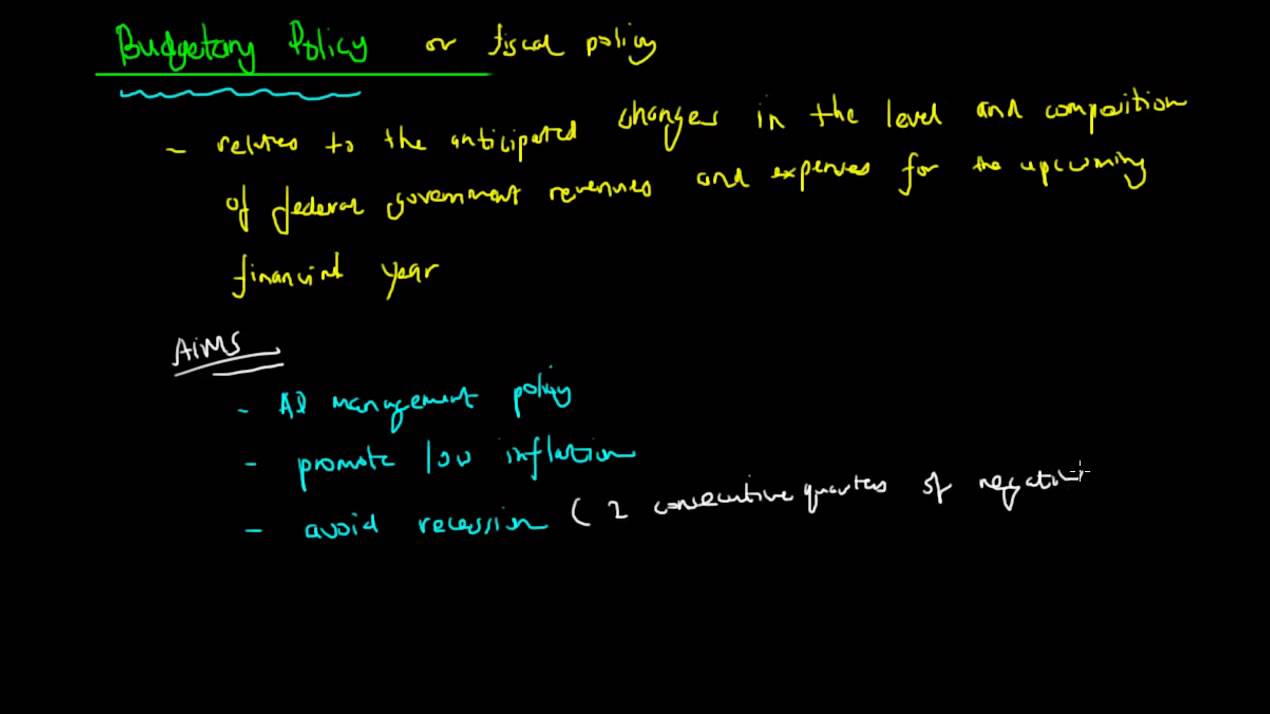 Budgetary Policy or fiscal policy
- relates to the anticipated changes in the level and composition
of federal government revenues and expenses for the upcoming
financial year
AIMS
- AD management policy
- promote low inflation
- avoid recession ( 2 consecutive quarters of negativ